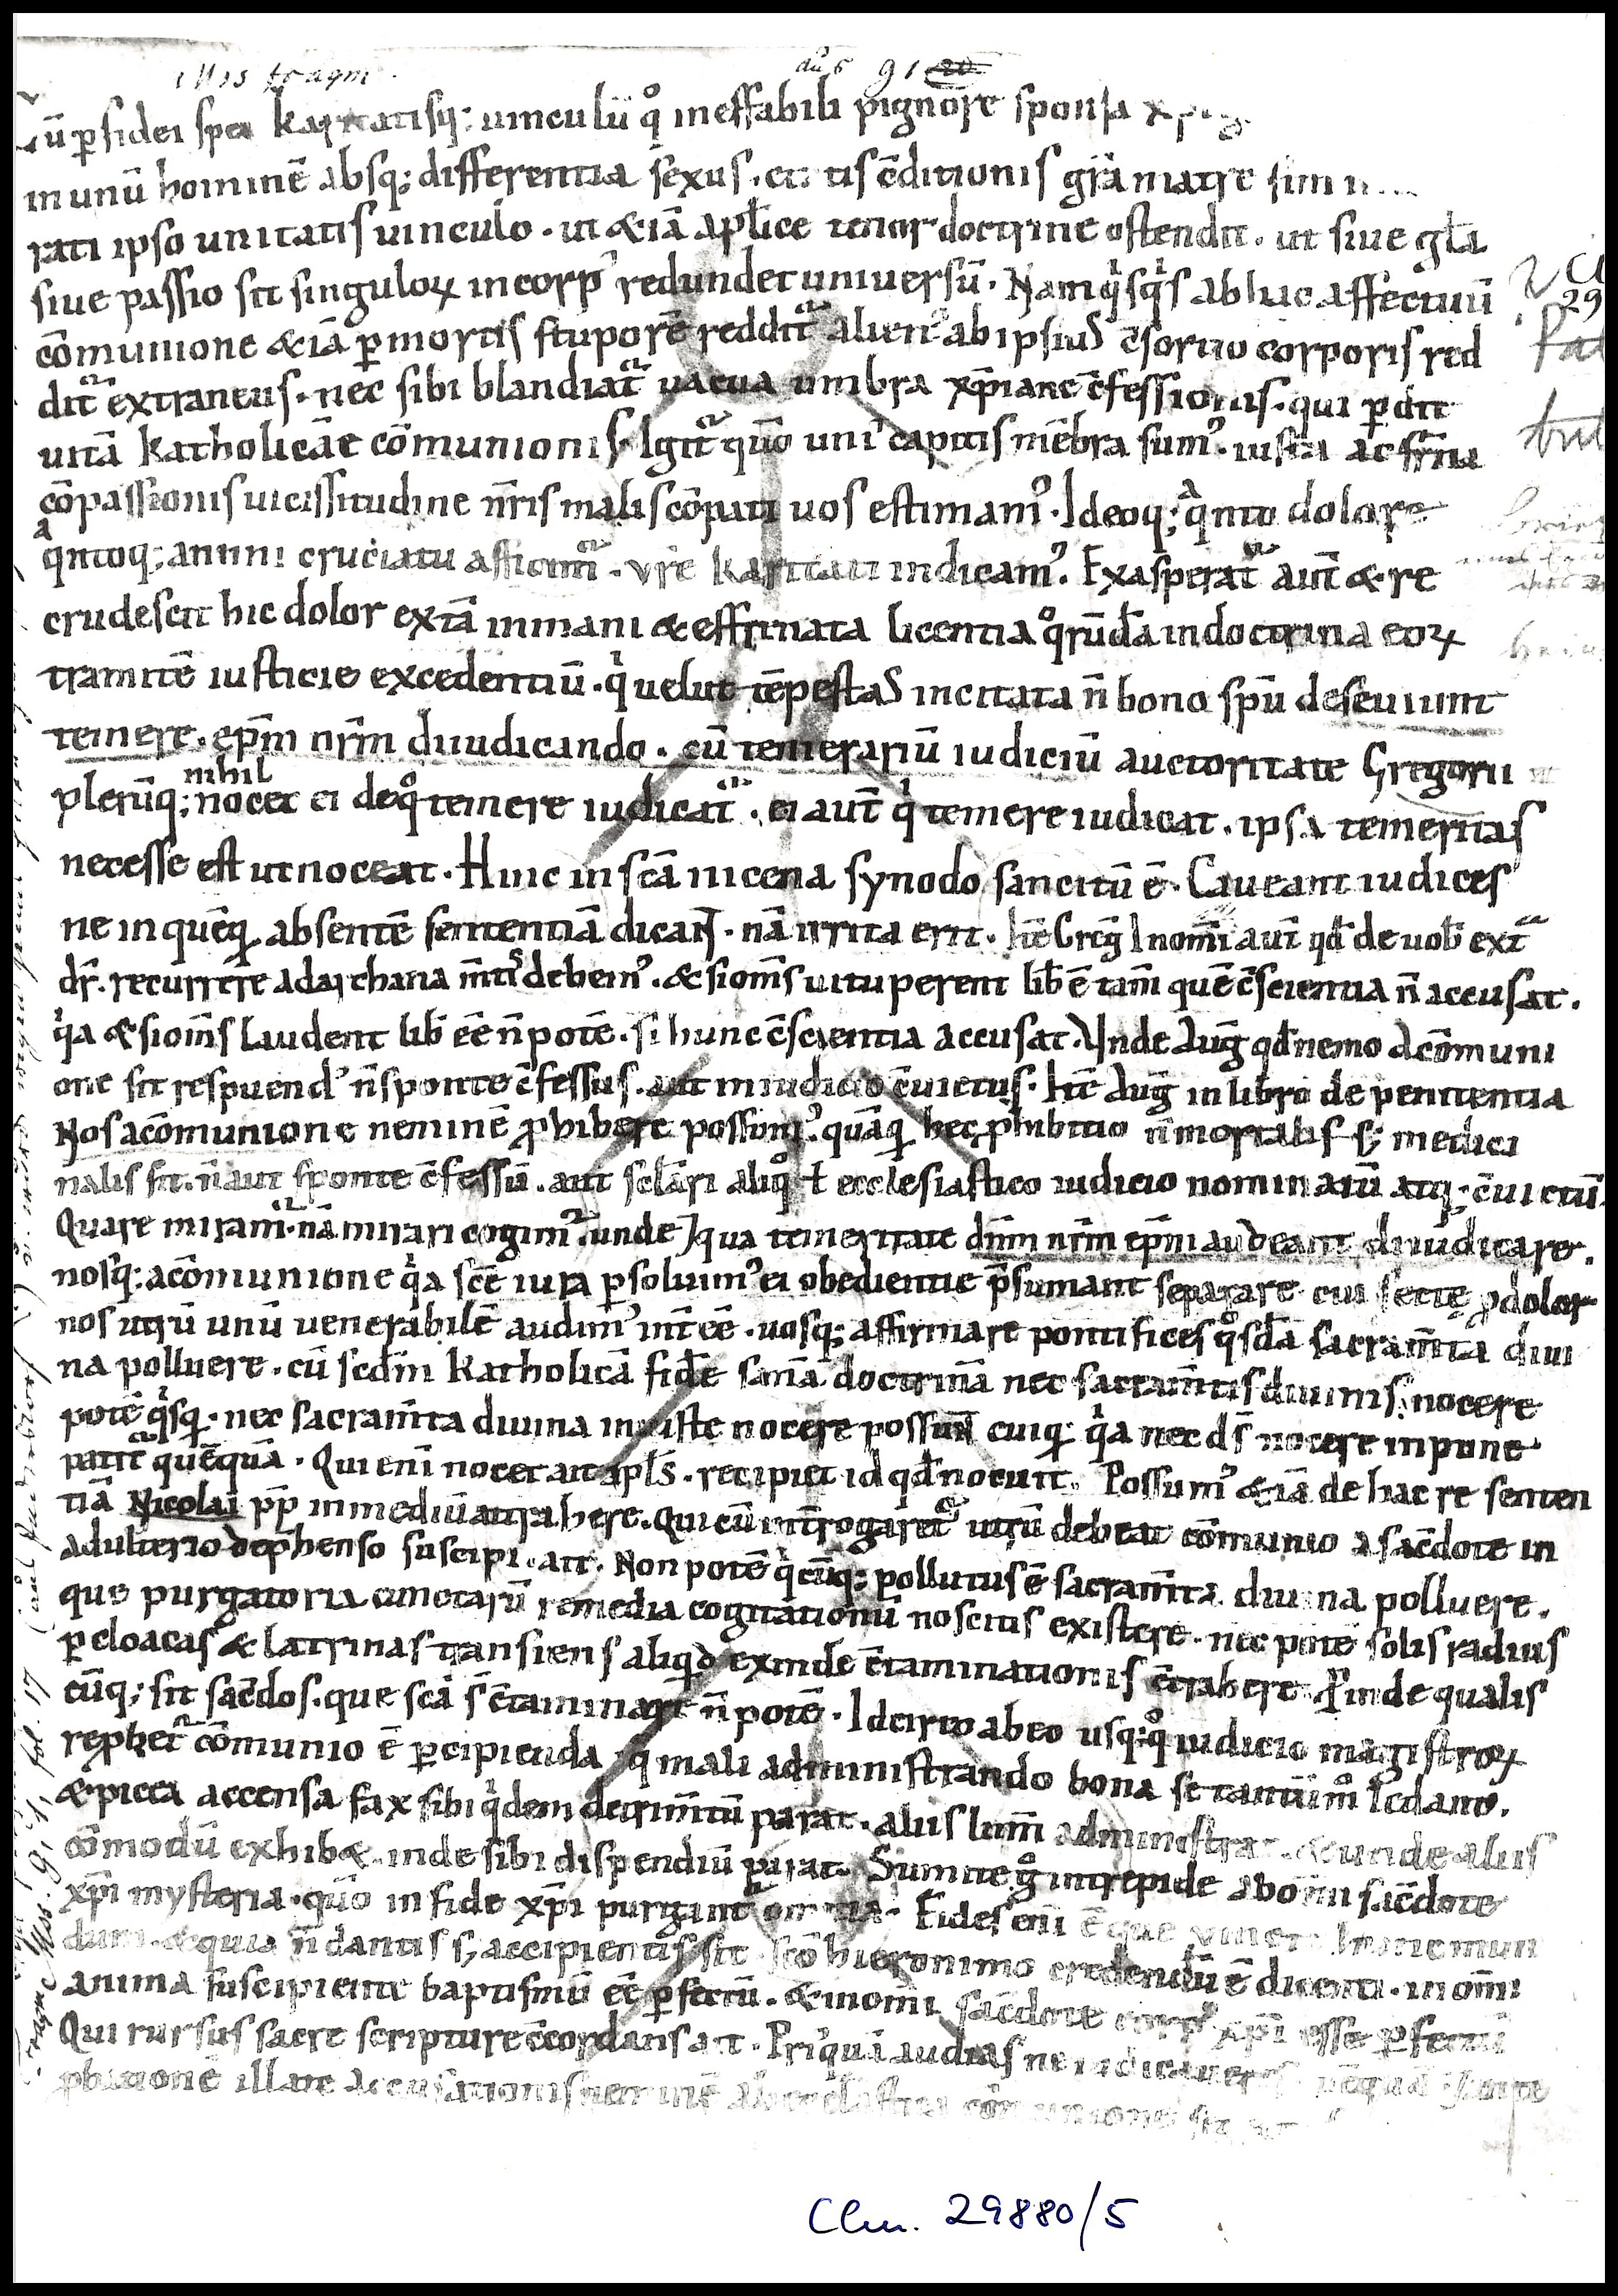 Mss fragm.
91
Cū ꝑ fidei spei karitatisq; uinculū qͦ ineffabili pignore sponsa
in unū hominē absq; differentia sexus. tis c̄ditionis grā matre
rati ipso unitatis uinculo. ut &iā apl̄ice tenor doctrine ostendit. ut siue gl̄a
siue passio sit singuloꝝ in corpꝰ redundet uniuersū. Nam qͥsqͥs ab huic affectuū
cōmunione &iā ꝑ mortis stuporē redditᷓ alienꝰ ab ipsius c̄sortio corporis red
ditᷓ extraneus. nec sibi blandiatᷓ uacua umbra xp̄iane c̄fessionis. qui ꝑdit
uitā katholicae cōmunionis. Igitᷓ qm̄o uniꝰ capitis mēbra sumꝰ. iusta ac fr̄na
cōpassionis uicissitudine nr̄is malis cōpati uos estimamꝰ. Ideoq; qᵃnto dolore
qᵃntoq; animi cruciatu afficimᷓ. vr̄e karitati indicamꝰ. Exasperatᷓ aut̄ & re
crudescit hic dolor ex tā inmani & effrenata licentia qͦrūdā indoctrina eoꝝ
tramitē iusticie excedentiū. qͥ uelut tēpestas incitata n̄ bono spū deseuiunt
temere. ep̄m nr̄m diiudicando. cū temerariū iudiciū auctoritate Gregorii
plerūq; nihil nocet ei de qͦ temere iudicatᷓ. ei aut̄ qͥ temere iudicat. ipsa temeritas
necesse est ut noceat. Hinc in sc̄a nicena synodo sancitū ē. Caueant iudices
ne in quēq absentē sententiā dicant. nā irrita erit. Itē Greg̅ In om̄i aut̄ qd̄ de uob̄ extᷓ
dr̄. recurrere ad archana m̄tis debemꝰ. & si om̄s uituperent lib̄ ē tam̄ quē c̄scientia n̄ accusat.
qͥa & si om̄s laudent lib̄ ēē n̄ potē. si hunc c̄scientia accusat. Unde Aug̅ qd̄ nemo a cōmuni
one sit respuendꝰ n̄ sponte c̄fessus. aut in iudicio c̄uictus. Itē Aug̅ in libro de penitentia
Nos a cōmunione neminē ꝓhibere possumꝰ. quāq hec ꝓhibitio n̄ mortalis s; medici
nalis sit. n̄ aut sponte c̄fessū. aut sclāri aliqͦ ł ecclesiastico iudicio nominatū atq; c̄uictū.
Quare miramᷓ. nā mirari cogimᷓ. unde qua temeritate dn̄m nr̄m ep̄m audeant diiudicare.
nosq; a cōmunione qͥa sc̄e iura ꝑsoluimꝰ ei obedientie p̄sumant separare. cui secte ꝓdolor
nos utrū unū uenerabilē audimꝰ int̄ēē. uosq; affirmare pontifices qͦsdā sacram̄ta diui
na polluere. cū scd̄m katholicā fidē sanā doctrinā nec sacram̄tis diuinis nocere
potē qͥsq. nec sacram̄ta diuina iniuste nocere possunt cuiq qͥa nec ds̄ nocere inpune
patitᷓ quēquā. Qui eni nocet ait apl̄s. recipiet id qd̄ nocuit. Possumꝰ &iā de hac re senten
tiā Nicolai pp̄ in mediū attrahere. Qui cū int̄rogaretᷓ utrū debeat cōmunio a sac̄dote in
adulterio dep̄henso suscipi. ait. Non potē qͥcūq; pollutus ē sacram̄ta diuina polluere.
que purgatoria cunctarū remedia cogitationū noscitis existere. nec potē solis radius
ꝑ cloacas & latrinas transiens aliqͥd exinde c̄taminationis c̄trahere. Ꝓinde qualis
cūq; sit sac̄dos. que sc̄a s̄ c̄taminare n̄ potē. Idcirco ab eo usq;qͦ iudicio magistroꝝ
reꝓbetᷓ cōmunio ē ꝑcipienda q mali administrando bona se tantūm̊ ledant.
& picea accensa fax sibi qͥdem detrim̄tū parat. aliis lum̄ administrat. & unde aliis
cōmodū exhib&. inde sibi dispendiū parat. Sumite gͦ intrepide ab om̄i sac̄dote
xp̄i mysteria. qm̄o in fide xp̄i purgantᷓ omnia. Fides eni ē que uincit hunc mun
dum. & quia n̄ dantis s; accipientis sit. sc̄o hieronimo credendū ē dicenti. in om̄i
anima suscipiente baptismū ēē ꝑfectū. & in om̄i sac̄dote corpꝰ xp̄i esse ꝑfectū
Qui rursus sacre scripture c̄cordans ait. Priꝰquā audias ne iudicaueris
ꝓbationē illate accusationis neminē ab eccl̄astica cōmunione
Clm. 29880/5